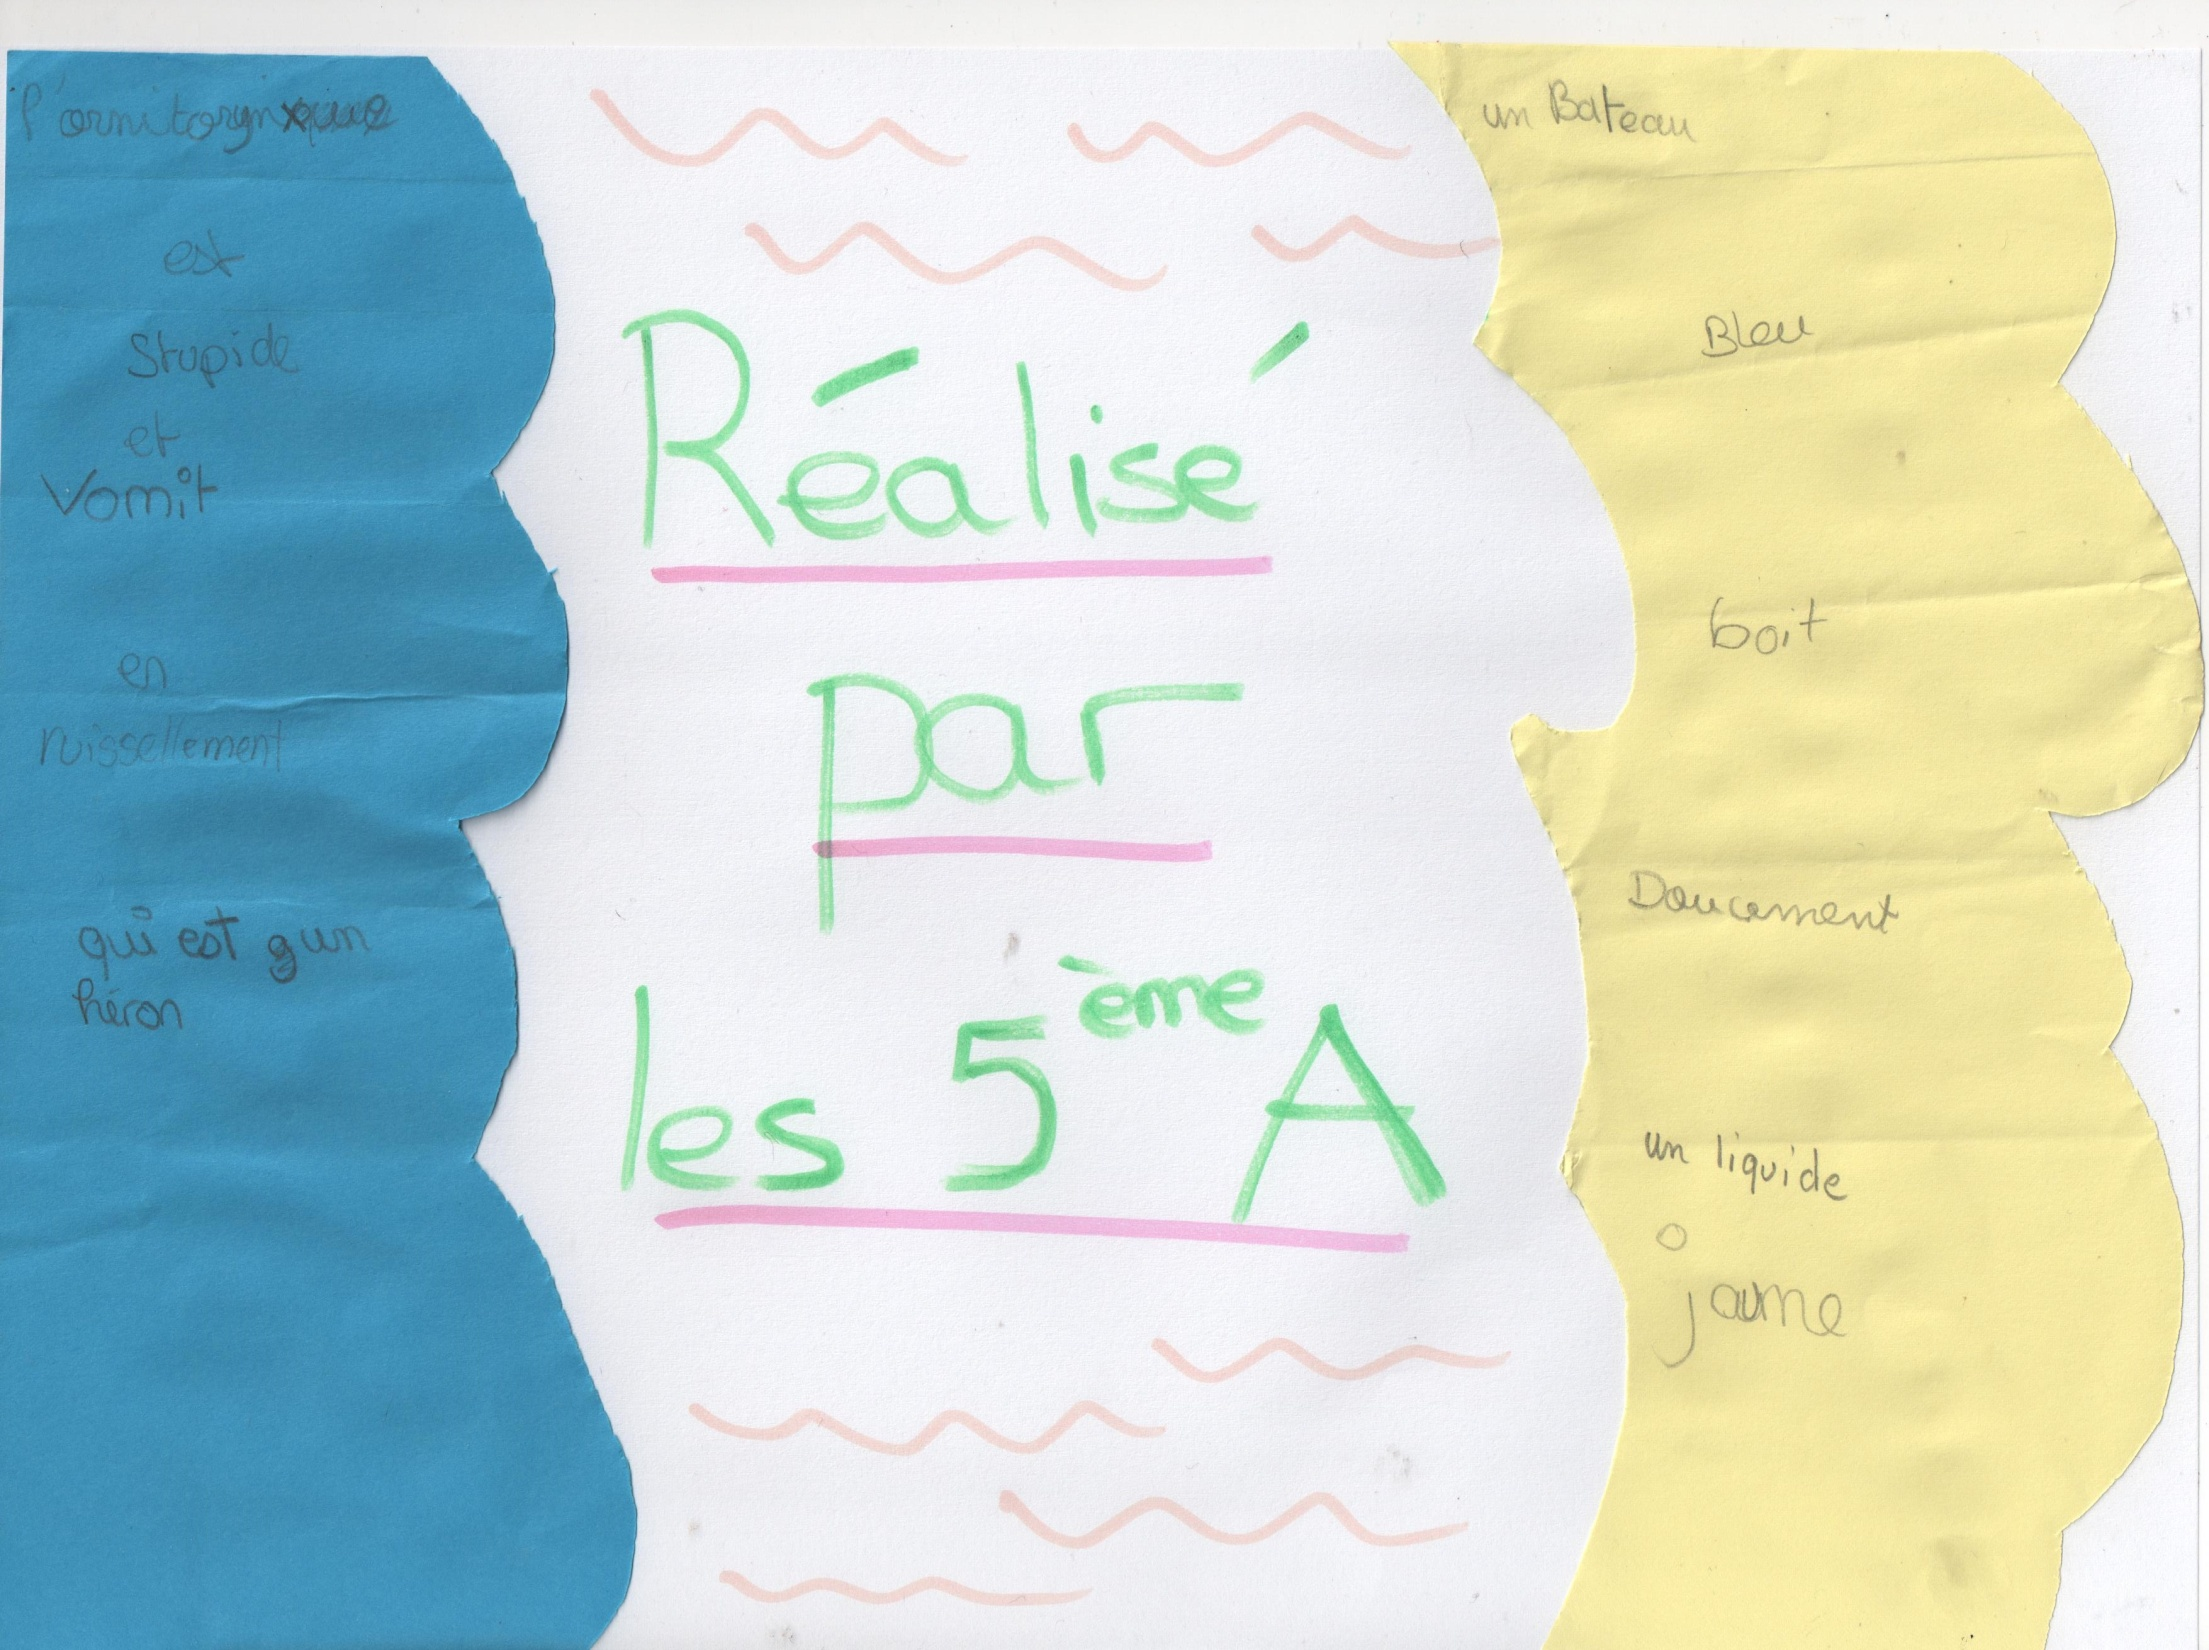 l'ornitorynx
est
Stupide
et
Vomit
en
ruissellement
qui est
un
héron
Réalisé
par
les 5ème A
un Bateau
Bleu
boit
Doucement
un liquide
jaune